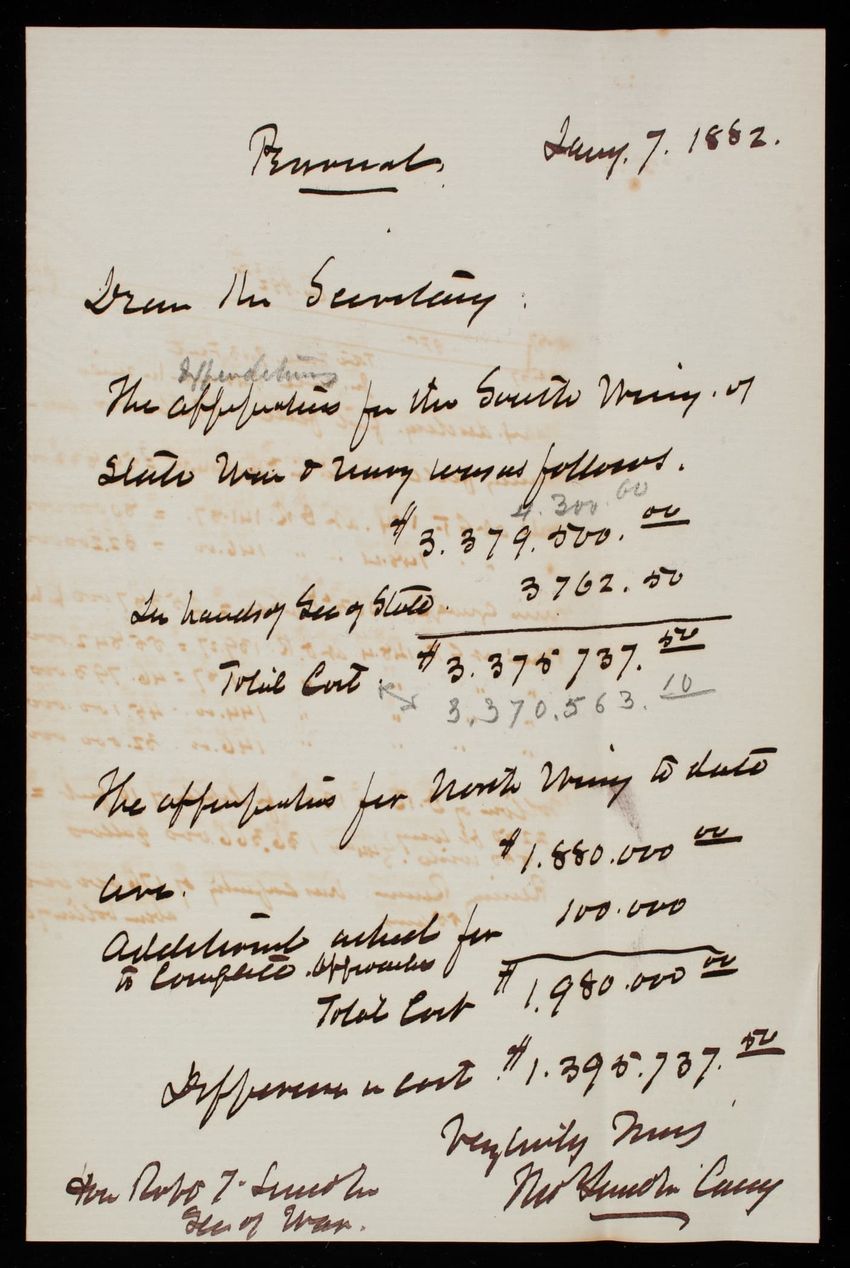 Personal.
Jany. 7. 1882.
Dear Mr Secretary:
Expenditures
The appropriations for the South Wing of
State War & Navy were as follows.
4.300.00
$3.379.500.00
In hands of Sec of State. 3762.50
Total Cost. $3.375737.50
3,370.563.10
The appropriations for North Wing to date
are. $1.880.000 00
Additional asked for 100.000
to Complete approaches
Total Cost $1,980.000 00
Difference in cost. $1.395.737.50
Very truly Yours
Thos Lincoln Casey
Hon Robt T. Lincoln
Sec of War.